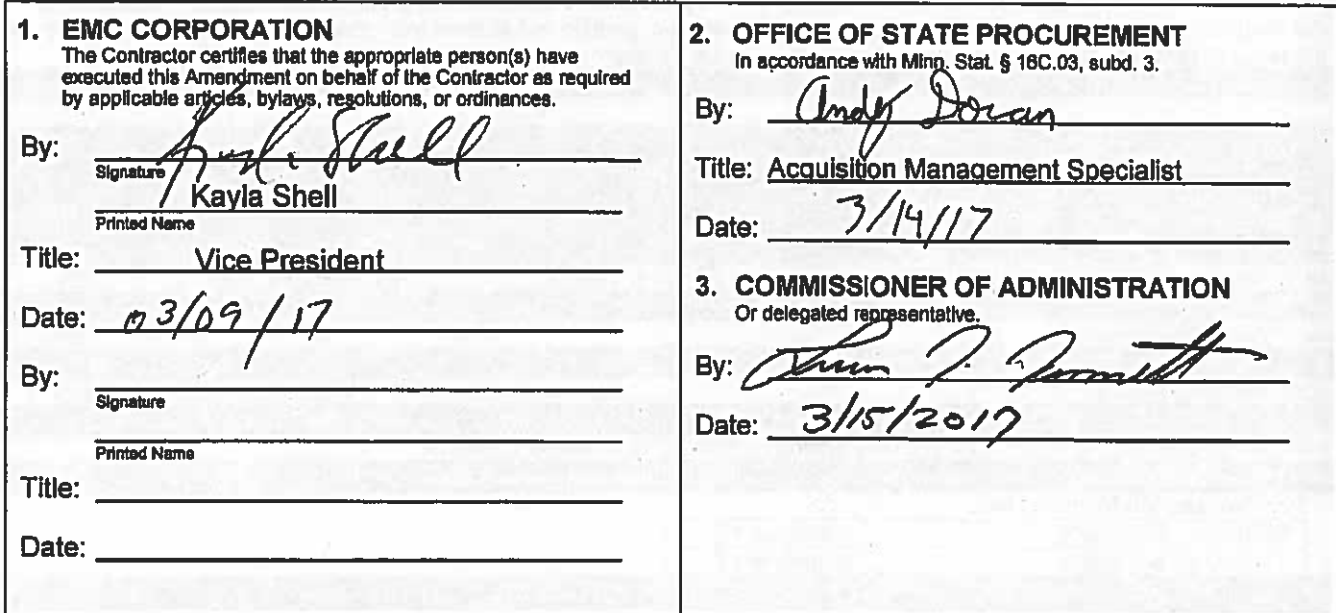 1. EMC CORPORATION
The Contractor certifies that the appropriate person(s) have
executed this Amendment on behalf of the Contractor as required
by applicable articles, bylaws, resolutions, or ordinances.
By: Kayla Shell
Signature
Kayla Shell
Printed Name
Title: Vice President
Date: 03/09/17
By:
Signature
Printed Name
Title:
Date:
2. OFFICE OF STATE PROCUREMENT
In accordance with Minn. Stat. § 16C.03, subd. 3.
By: Andy Doran
Title: Acquisition Management Specialist
Date: 3/14/17
3. COMMISSIONER OF ADMINISTRATION
Or delegated representative.
By:
Date: 3/15/2017